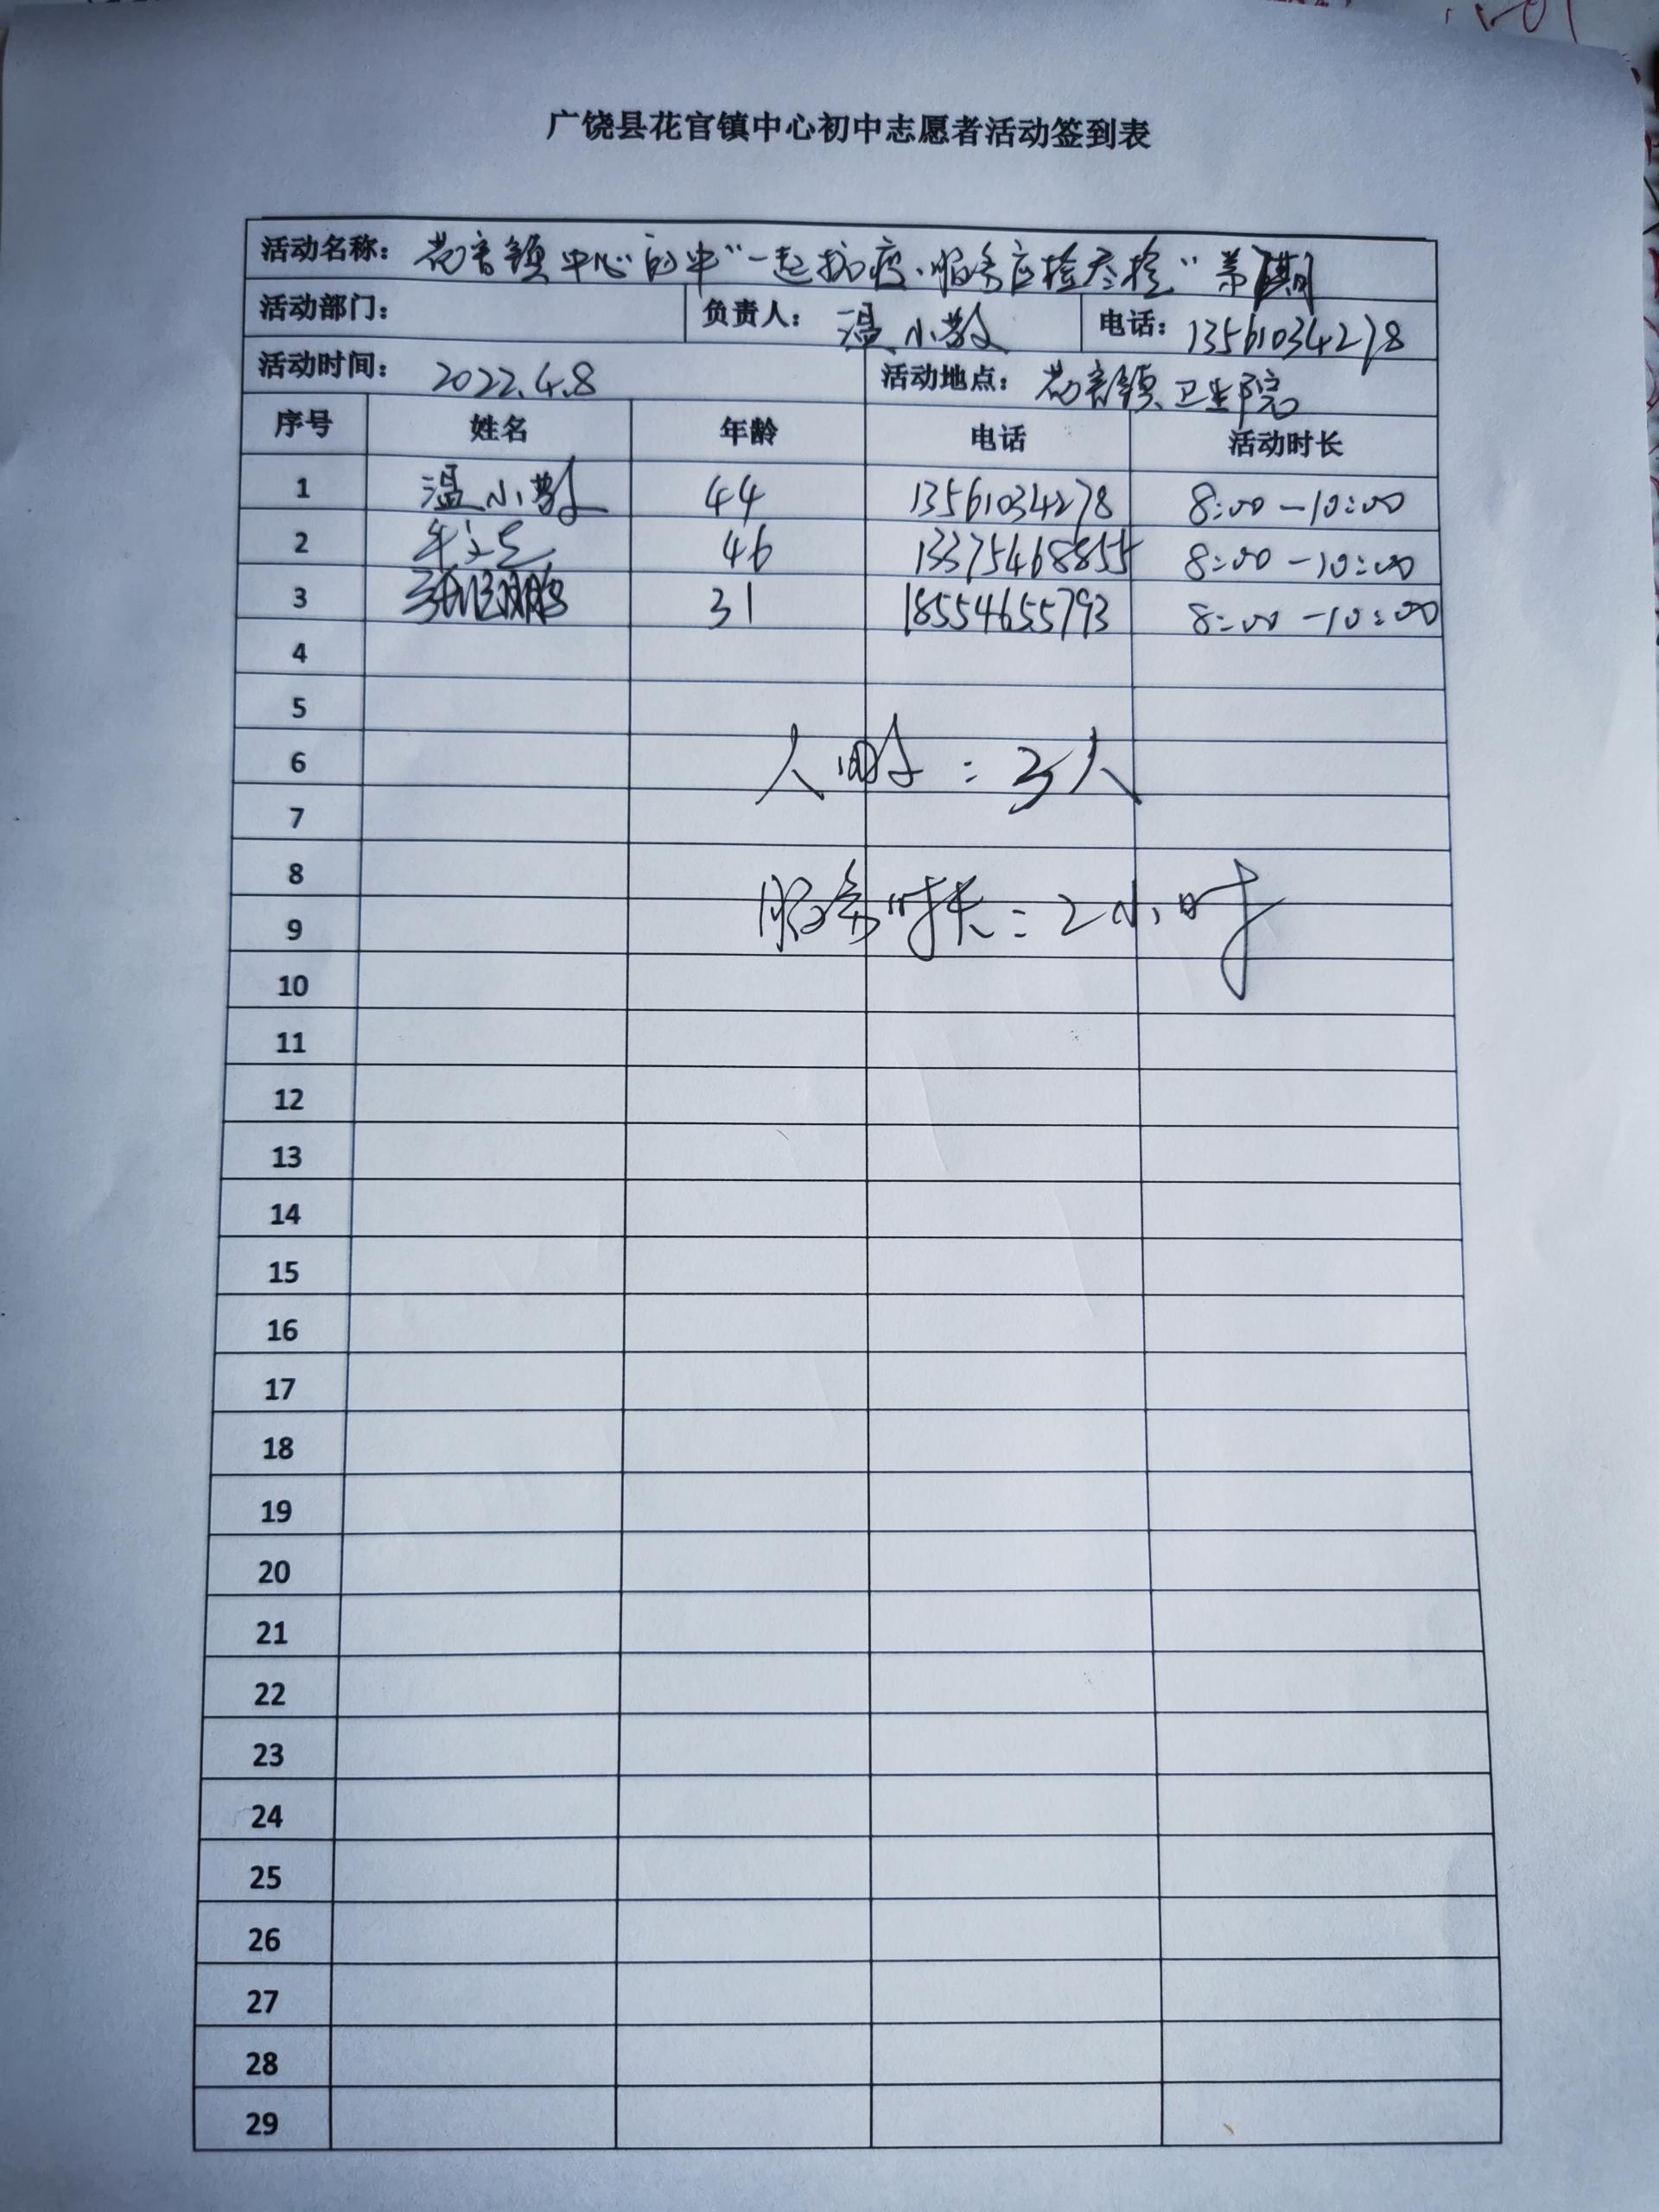 广饶县花官镇中心初中志愿者活动签到表
活动名称: 花官镇中心初中“一起抗疫、服务应检尽检” 第 期
活动部门: 负责人: 温小 电话: 13561034278
活动时间: 2022.4.8 活动地点: 花官镇卫生院
序号 姓名 年龄 电话 活动时长
1 温小 44 13561034278 8:00-10:00
2 46 13375468855 8:00-10:00
3 31 18554655793 8:00-10:00
4
5
6 人 : 3人
7
8
9 服务时长: 2小时
10
11
12
13
14
15
16
17
18
19
20
21
22
23
24
25
26
27
28
29